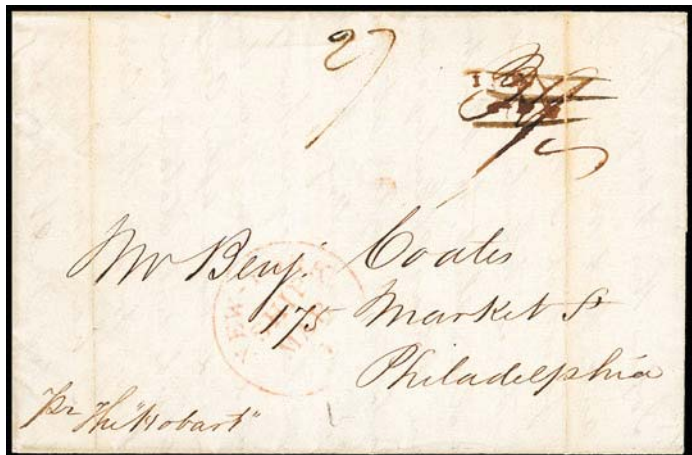 27
Mr Benj. Coates
175 Market St
Philadelphia
pr The "Hobart"
NEW
SHIP